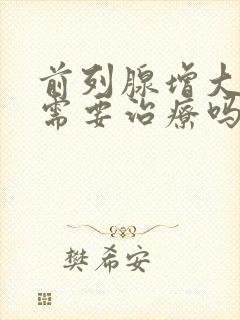 前列腺增大
需要治疗吗
樊希安